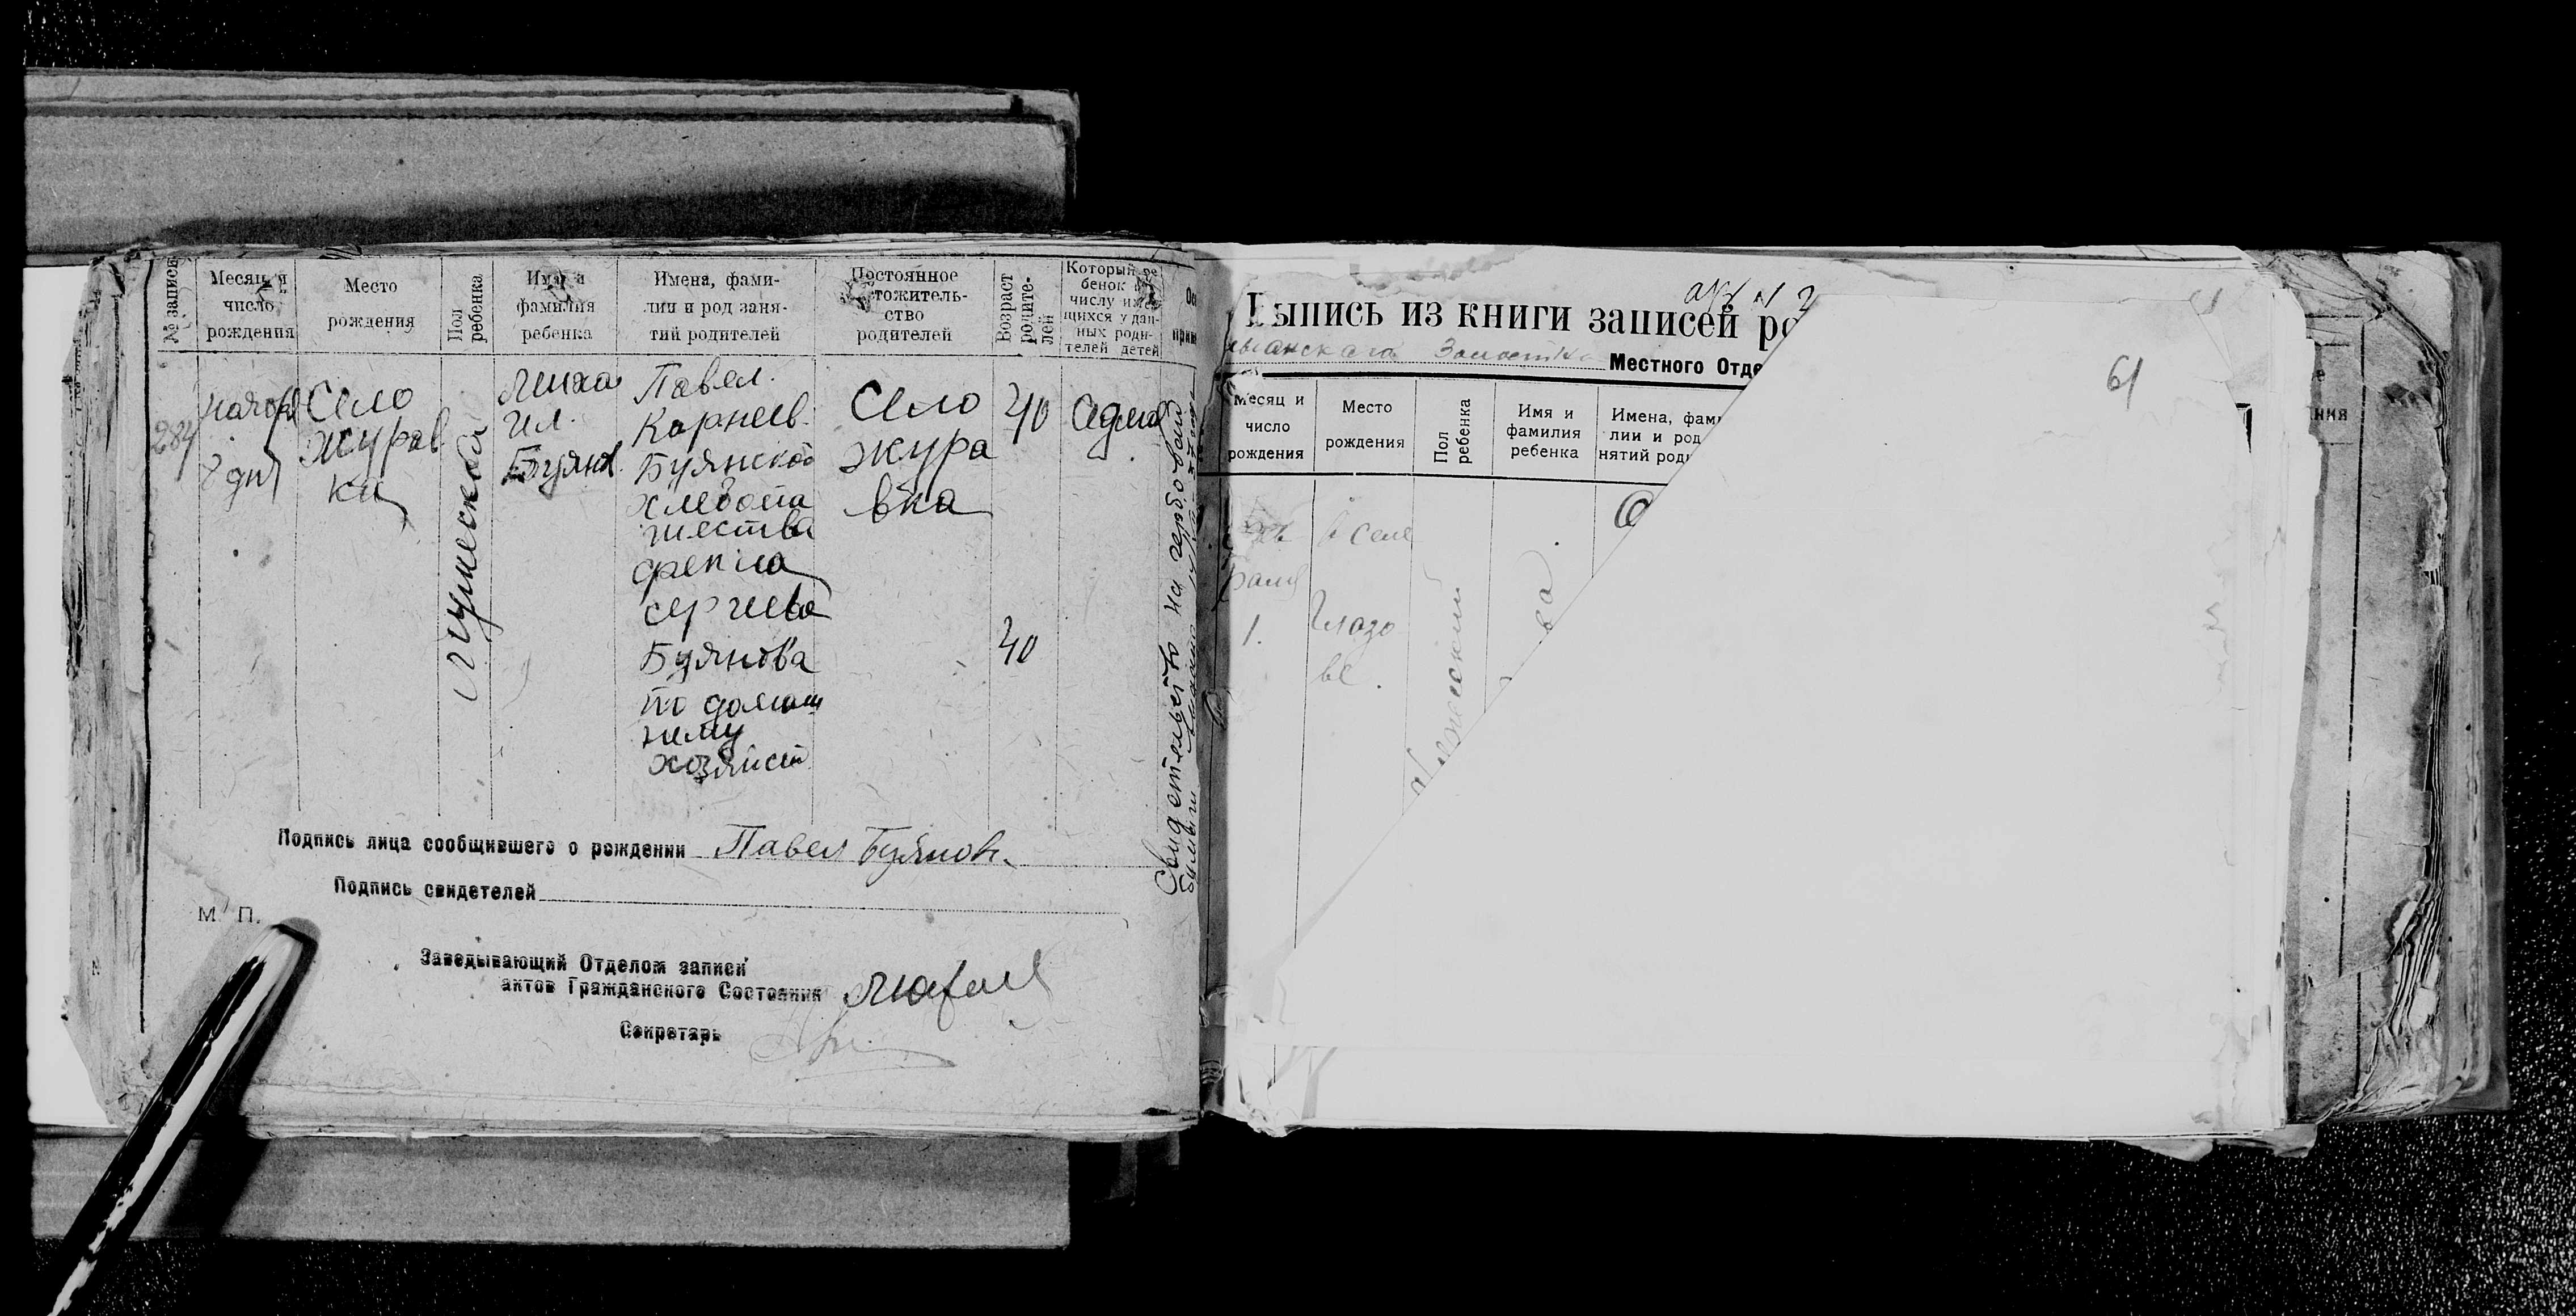 № записи
Месяц и
число
рождения
Место
рождения
Пол
ребенка
Имя и
фамилия
ребенка
Имена, фами-
лии и род заня-
тий родителей
Постоянное
тожитель-
ство
родителей
Возраст
родите-
лей
Который ре
бенок
числу имею
щихся у дан-
ных роди-
телей детей
284
ноября
7 дня
Село
Журав
ки
мужеской
Миха
ил.
Буянов
Павел.
Корнеев.
Буянской
хлебопа
шества
сергиева
Буянова
по домаш
нему
хозяйст
Село
жура
вка
40
40
Свидетельство на гербовой
бумаги
Подпись лица сообщившего о рождении Павел Буянов.
Подпись свидетелей
М. П.
Заведывающий Отделом записи
актов Гражданского Состояния
Секретарь
Выпись из книги записей ро
Местного Отде
61
Месяц и
число
рождения
Место
рождения
Пол
ребенка
Имя и
фамилия
ребенка
Имена, фам
лии и род
нятий роди
раля
1.
В селе
Глазо
ве.
мужеский
ва